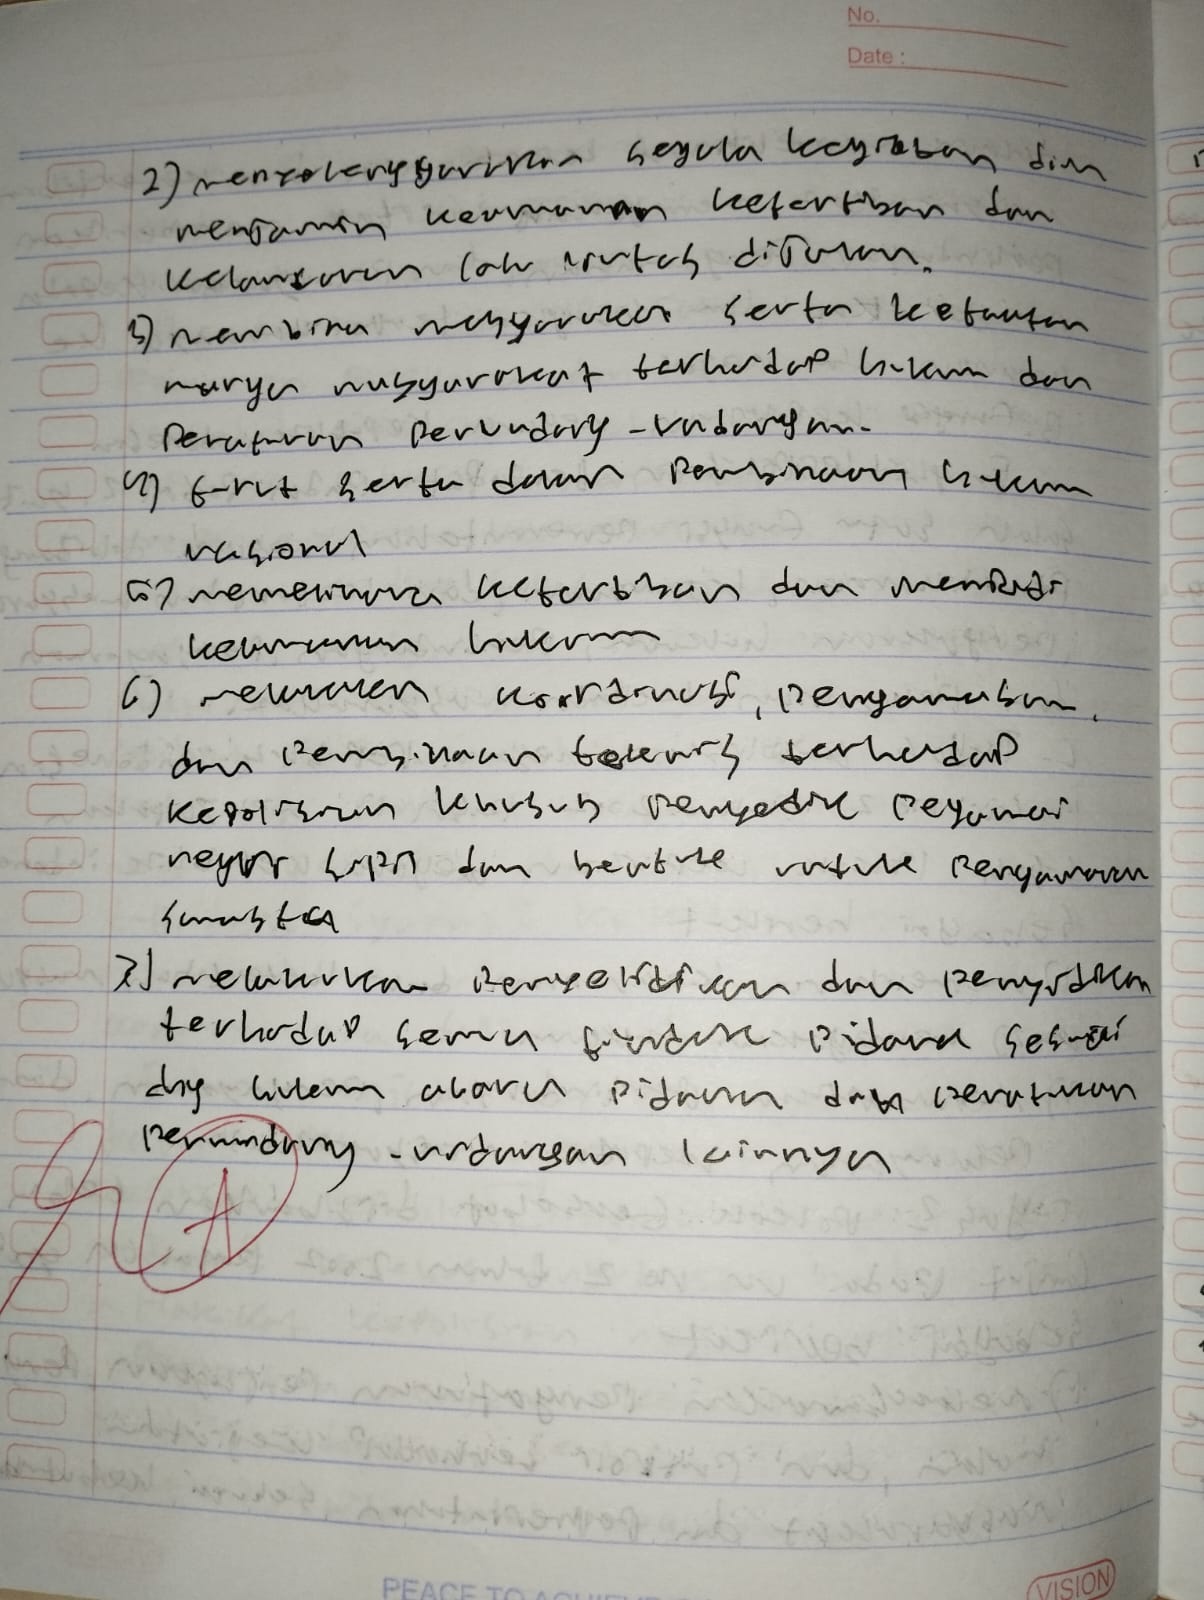 No.
Date :
2) menyelenggarikan segala kegiatan dlm
menjamin keamanan ketertiban dan
kelancaran lalu lintas dijalan.
3) membina masyarakat serta ketaatan
warga masyarakat terhadap hukum dan
Peraturan Perundang-undangan.
4) turut serta dalam Pembinaan hukum
nasional
5) memelihara ketertiban dan menjadi
keamanan hukum
6) melakukan koordinasi, Pengawasan,
dan Pembinaan teknis terhadap
Kepolisian khusus Penyidik Pegawai
negeri sipil dan bentuk untuk Pengamanan
swasta
7) melakukan Penyelidikan dan Penyidikan
terhadap semua tindak Pidana sesuai
dng hukum acara Pidana dan Peraturan
Perundang-undangan lainnya
A
PEACE TO
VISION